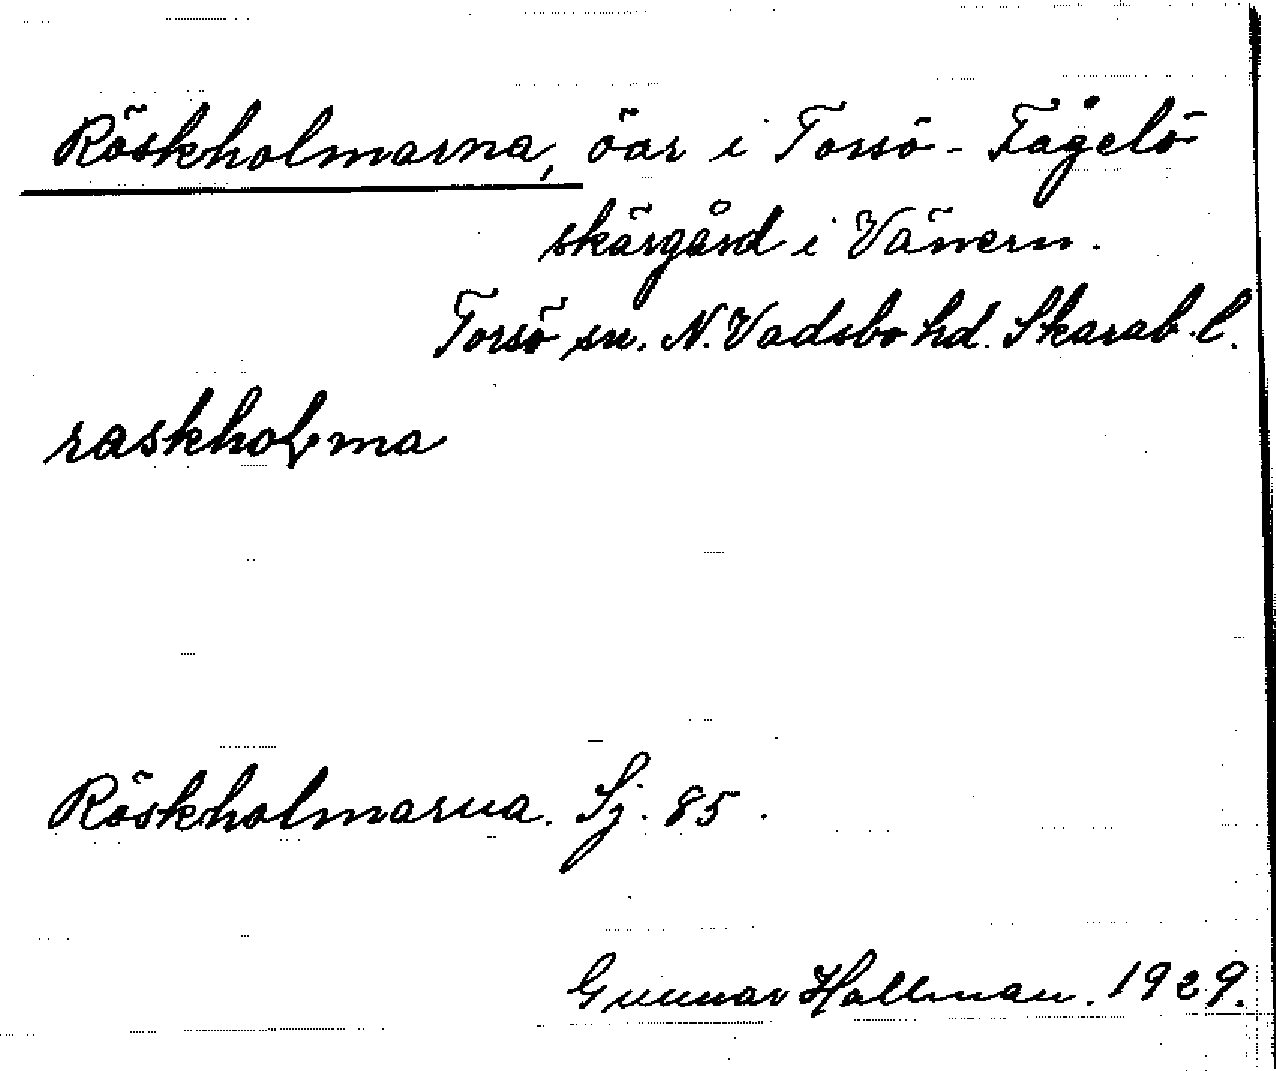 Röskholmarna, öar i Torsö - Fågelö
skärgård i Vänern.
Torsö sn. N. Vadsbo hd. Skarab. l.
raskholma
Röskholmarna. Sj. 85.
Gunnar Hallman. 1929.